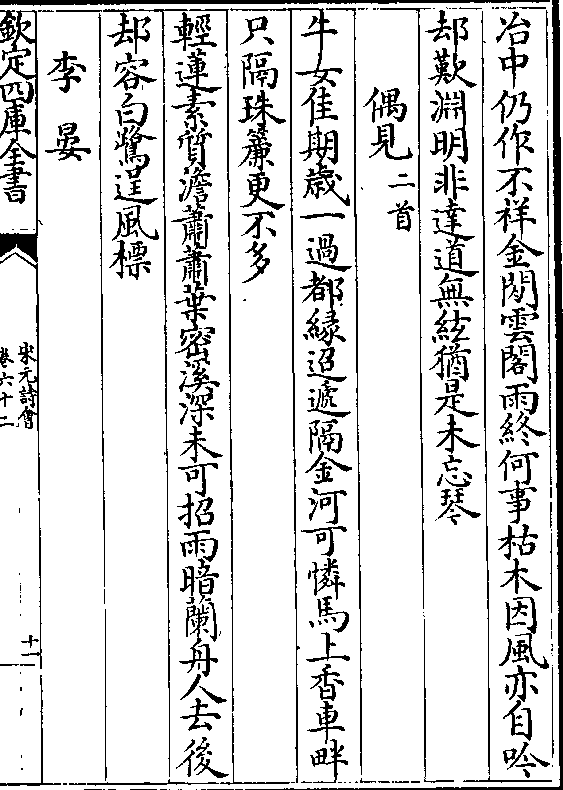 冶中仍作不祥金閉雲閣雨終何事枯木因風亦自吟
却歎淵明非達道無絃猶是未忘琴
偶見二首
牛女佳期歳一過都緣迢遞隔金河可憐馬上香車畔
只隔珠簾更不多
輕蓮素質澹蕭蕭葉密溪深未可招雨暗蘭舟人去後
却容白鷺逞風標
李晏
欽定四庫全書
宋元詩會
卷六十二
十一